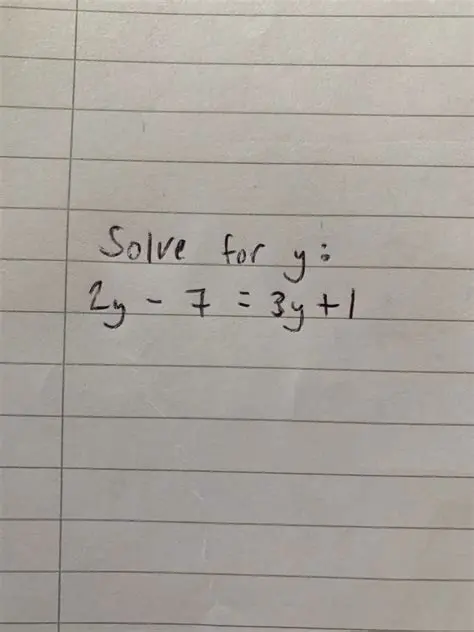 Solve for y:
2y - 7 = 3y + 1